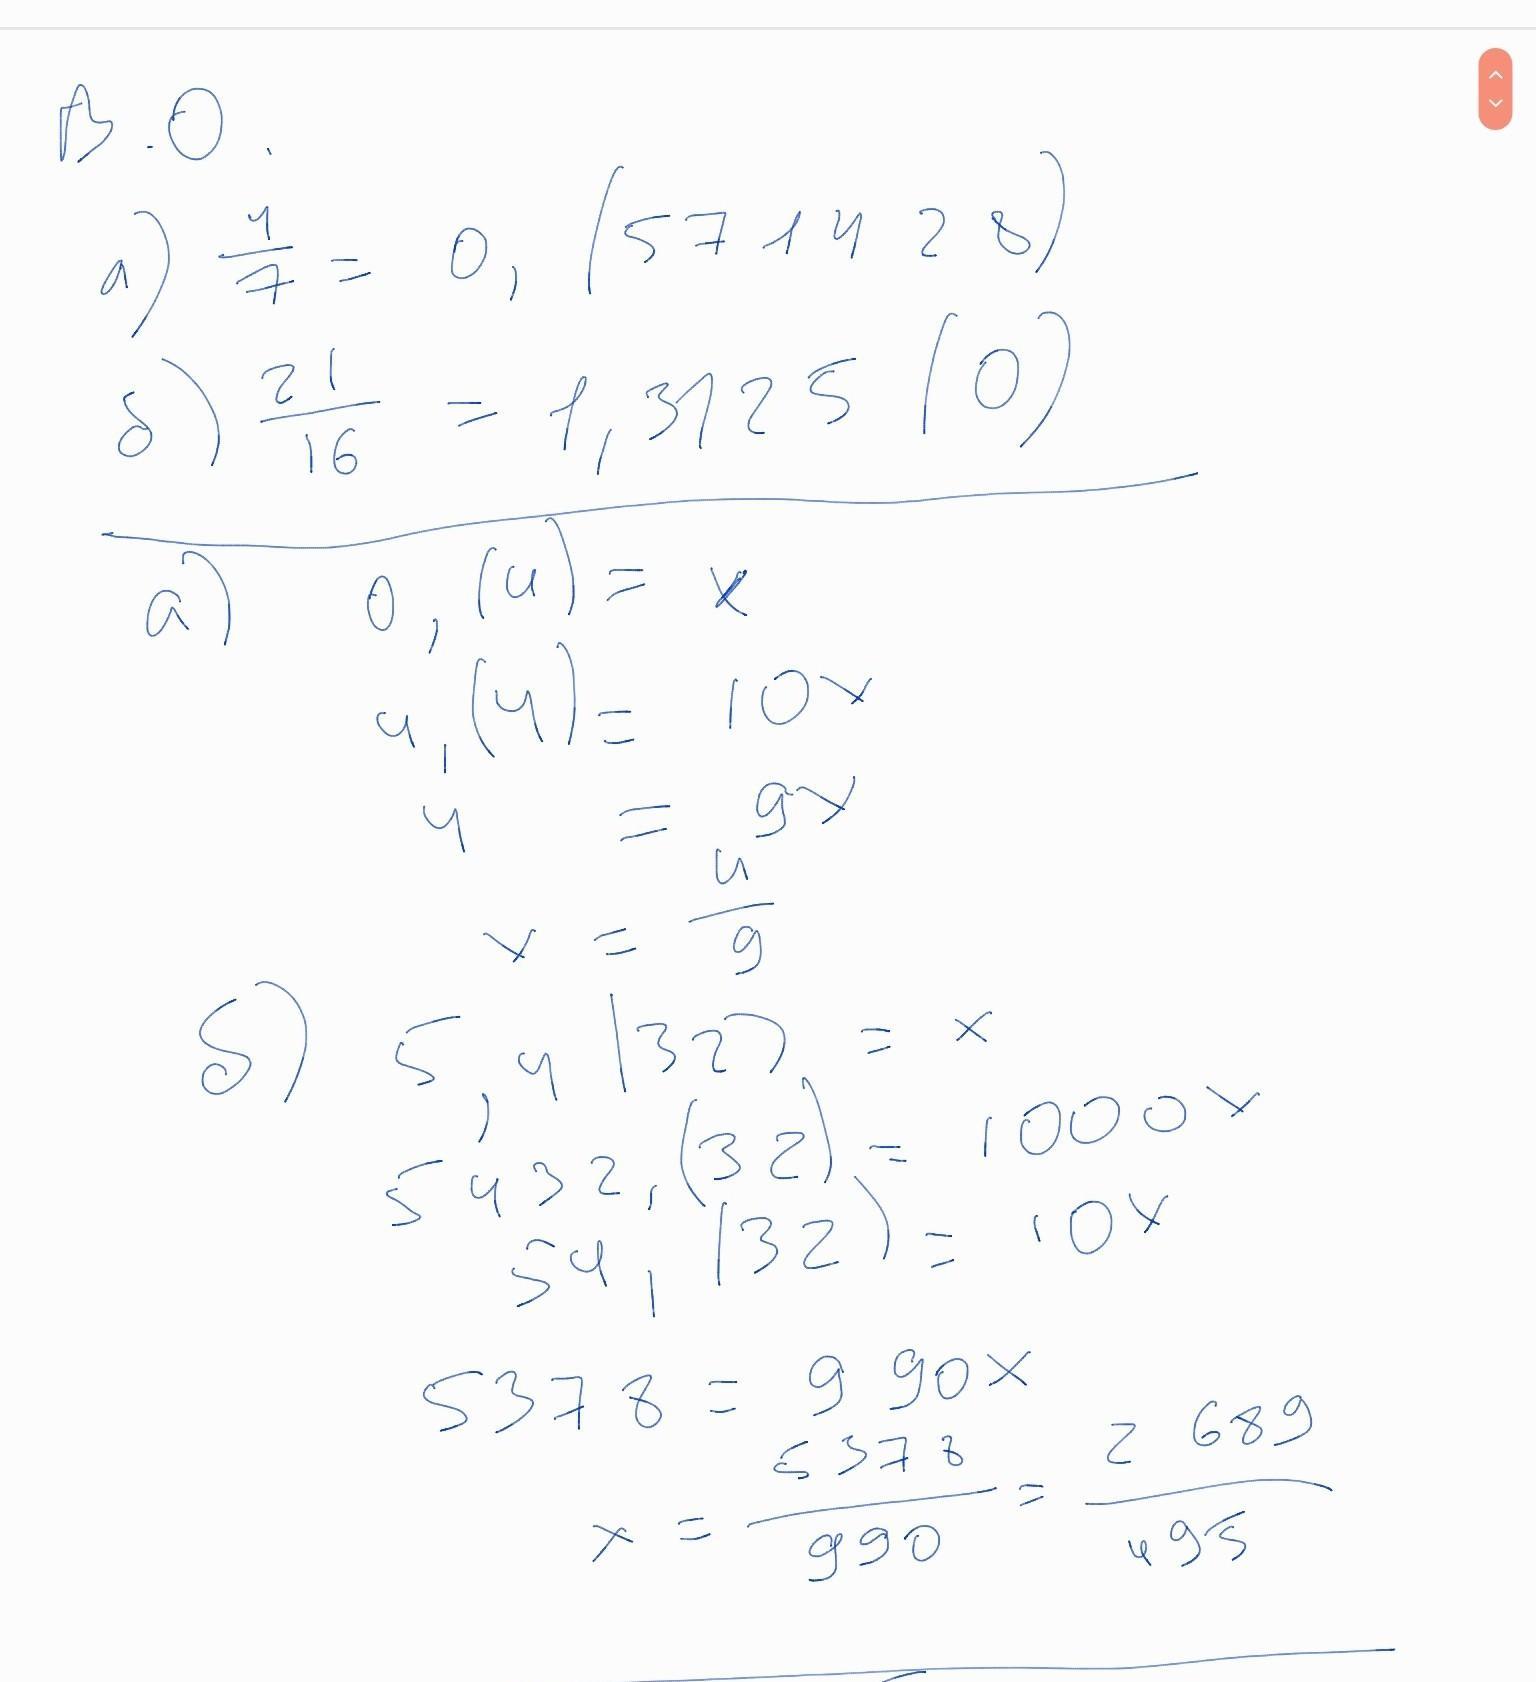 В.О.
а) 4/7 = 0,(571428)
б) 21/16 = 1,3125(0)
а) 0,(4) = x
4,(4) = 10x
4 = 9x
x = 4/9
б) 5,4(32) = x
5432,(32) = 1000x
54,(32) = 10x
5378 = 990x
x = 5378/990 = 2689/495